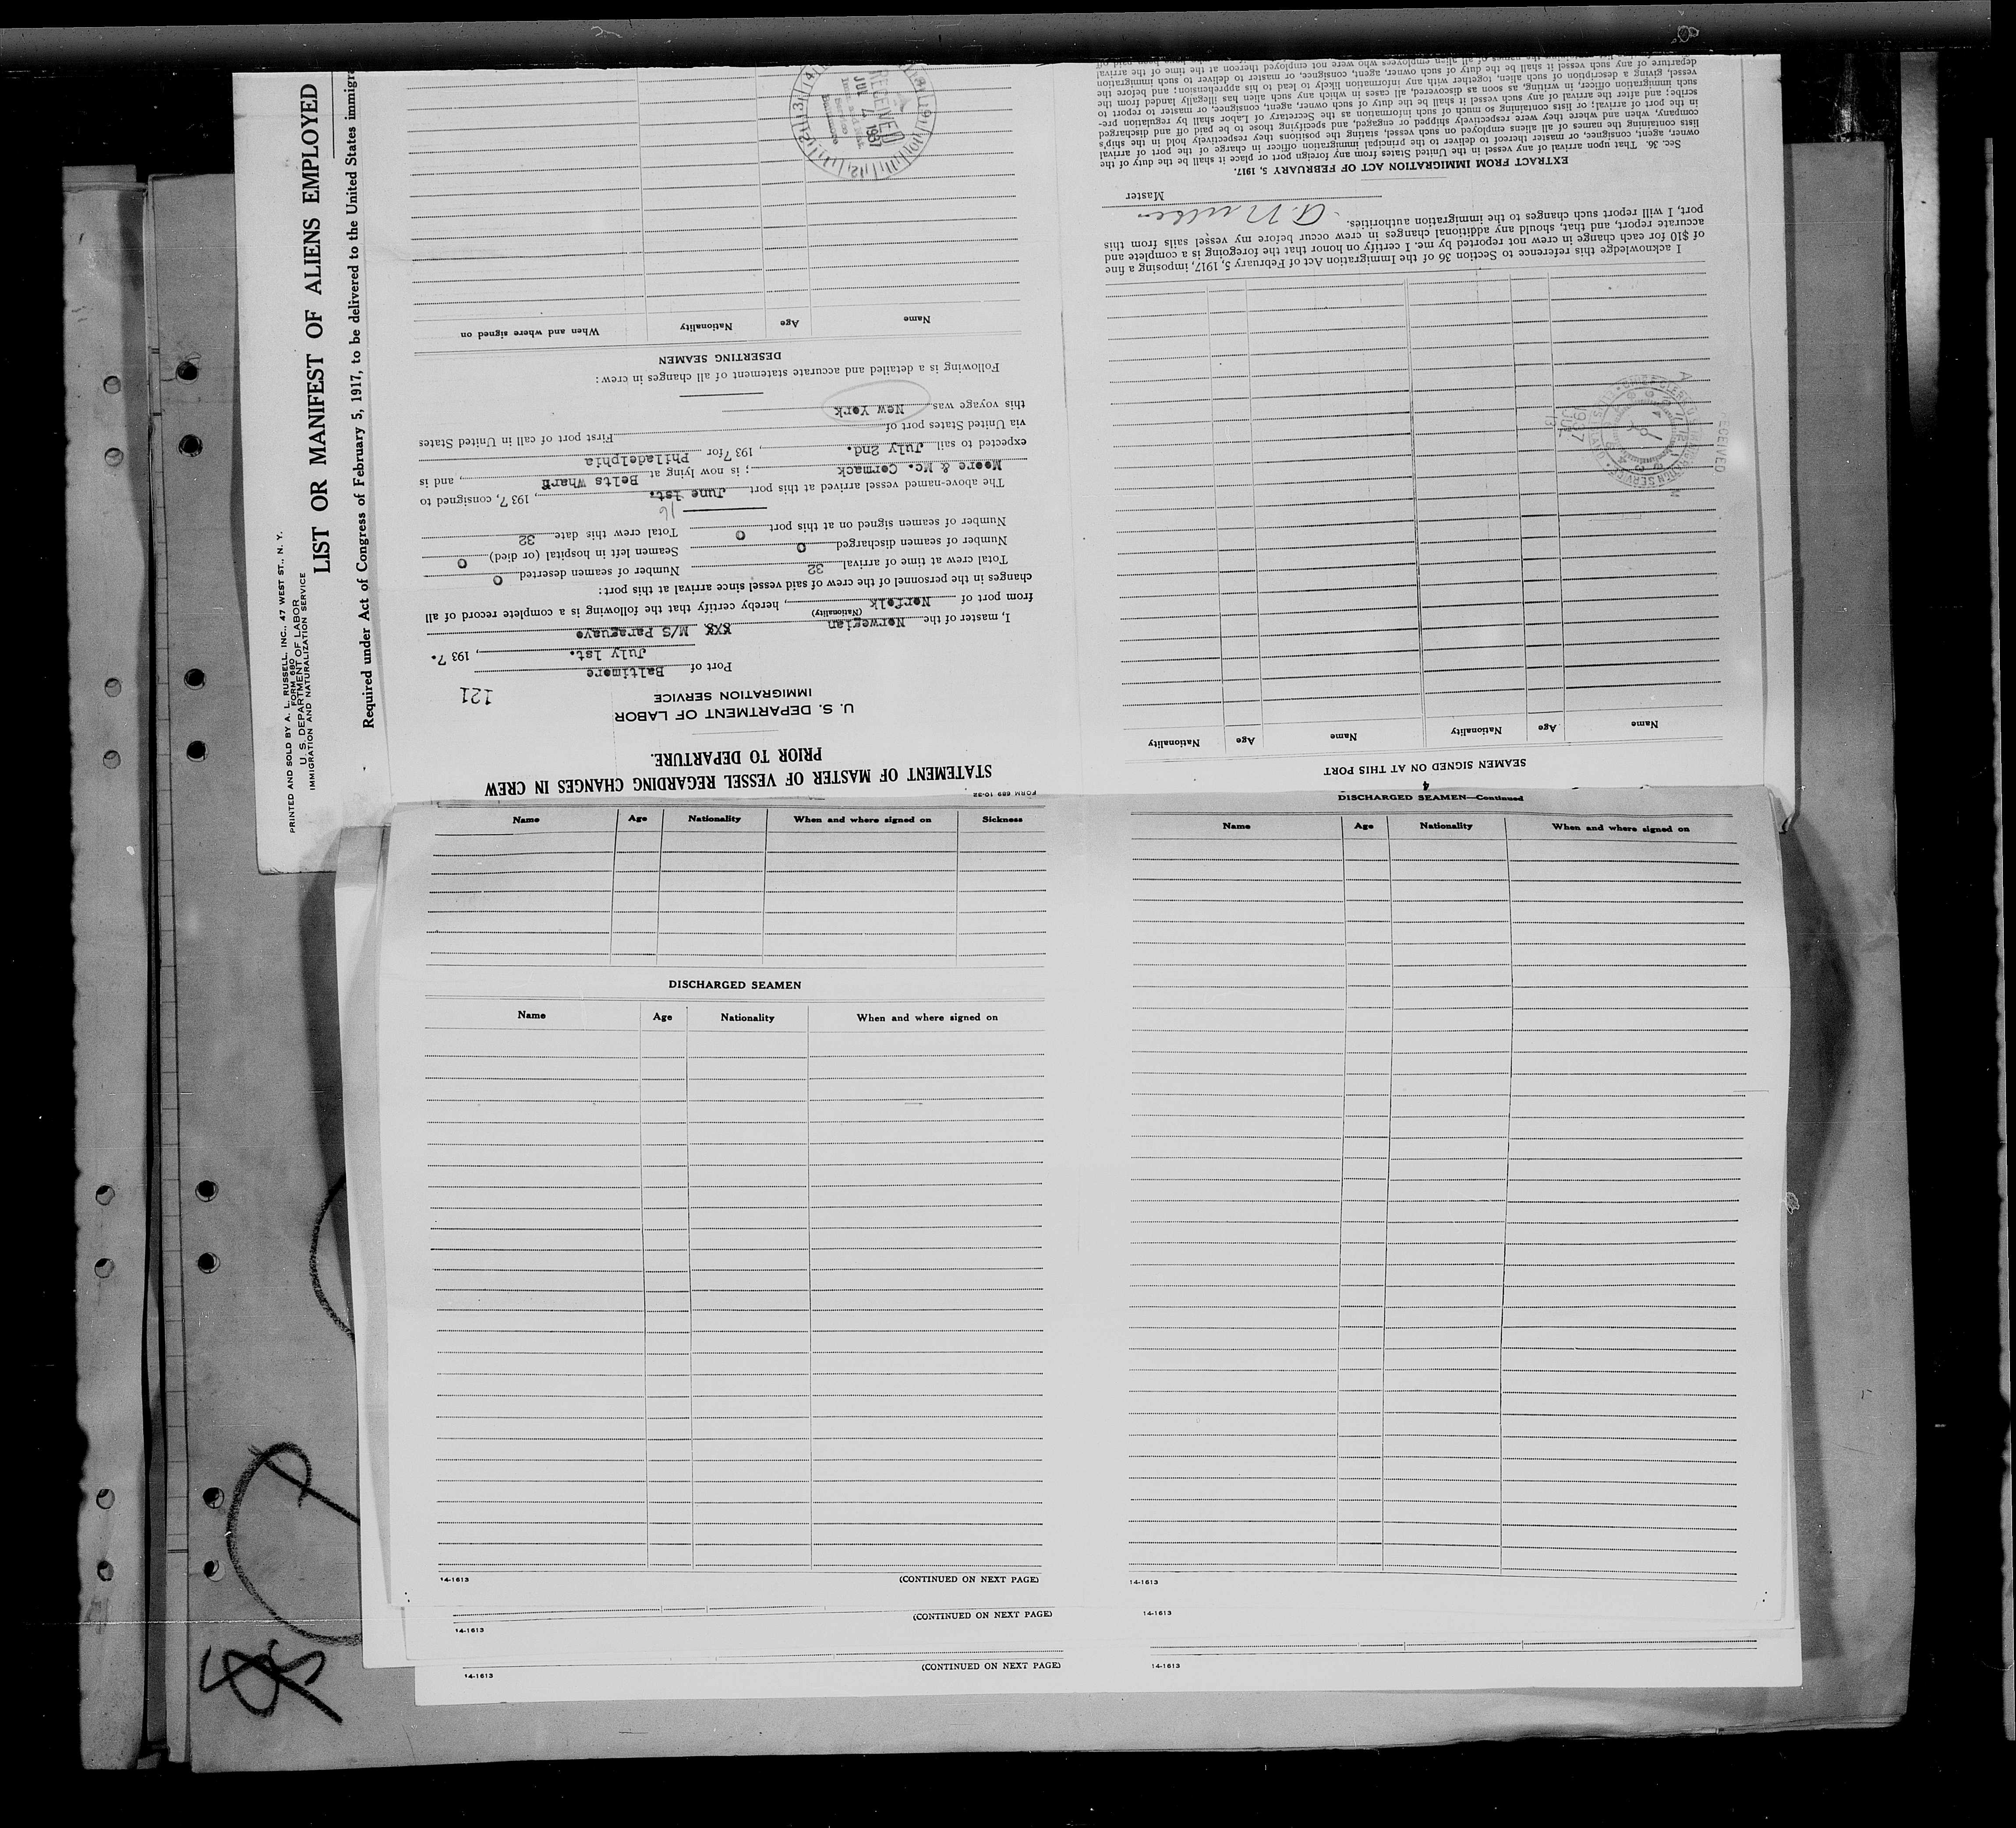 PRINTED AND SOLD BY A. L. RUSSELL, INC., 47 WEST ST., N. Y.
FORM 680
U. S. DEPARTMENT OF LABOR
IMMIGRATION AND NATURALIZATION SERVICE
LIST OR MANIFEST OF ALIENS EMPLOYED
Required under Act of Congress of February 5, 1917, to be delivered to the United States immigra
FORM 689 10-32
STATEMENT OF MASTER OF VESSEL REGARDING CHANGES IN CREW
PRIOR TO DEPARTURE.
U. S. DEPARTMENT OF LABOR
IMMIGRATION SERVICE
121
Port of Baltimore
July 1st. , 193 7.
I, master of the Norwegian XXX M/S Paraguayo
(Nationality)
from port of Norfolk, hereby certify that the following is a complete record of all
changes in the personnel of the crew of said vessel since arrival at this port:
Total crew at time of arrival 32 Number of seamen deserted 0
Number of seamen discharged 0 Seamen left in hospital (or died) 0
Number of seamen signed on at this port 0 Total crew this date 32
16
The above-named vessel arrived at this port June 1st. , 193 7, consigned to
Moore & Mc. Cormack ; is now lying at Belts Wharf , and is
expected to sail July 2nd. , 193 7 for Philadelphia
via United States port of First port of call in United States
this voyage was New York
Following is a detailed and accurate statement of all changes in crew:
DESERTING SEAMEN
Name Age Nationality When and where signed on
RECEIVED
JUL 2 1937
Baltimore
SEAMEN SIGNED ON AT THIS PORT
Name Age Nationality Name Age Nationality
RECEIVED
1937
JUL
13
I acknowledge this reference to Section 36 of the Immigration Act of February 5, 1917, imposing a fine
of $10 for each change in crew not reported by me. I certify on honor that the foregoing is a complete and
accurate report, and that, should any additional changes in crew occur before my vessel sails from this
port, I will report such changes to the immigration authorities.
Master
EXTRACT FROM IMMIGRATION ACT OF FEBRUARY 5, 1917.
Sec. 36. That upon arrival of any vessel in the United States from any foreign port or place it shall be the duty of the
owner, agent, consignee, or master thereof to deliver to the principal immigration officer in charge of the port of arrival
lists containing the names of all aliens employed on such vessel, stating the positions they respectively hold in the ship's
company, when and where they were respectively shipped or engaged, and specifying those to be paid off and discharged
in the port of arrival; or lists containing so much of such information as the Secretary of Labor shall by regulation pre-
scribe; and after the arrival of any such vessel it shall be the duty of such owner, agent, consignee, or master to report to
such immigration officer, in writing, as soon as discovered, all cases in which any such alien has illegally landed from the
vessel, giving a description of such alien, together with any information likely to lead to his apprehension; and before the
departure of any such vessel it shall be the duty of such owner, agent, consignee, or master to deliver to such immigration
names of all alien employees who were not employed thereon at the time of the arrival
Name Age Nationality When and where signed on Sickness
DISCHARGED SEAMEN
Name Age Nationality When and where signed on
14-1613 (CONTINUED ON NEXT PAGE)
(CONTINUED ON NEXT PAGE)
14-1613
(CONTINUED ON NEXT PAGE)
14-1613
4
DISCHARGED SEAMEN—Continued
Name Age Nationality When and where signed on
14-1613
14-1613
14-1613